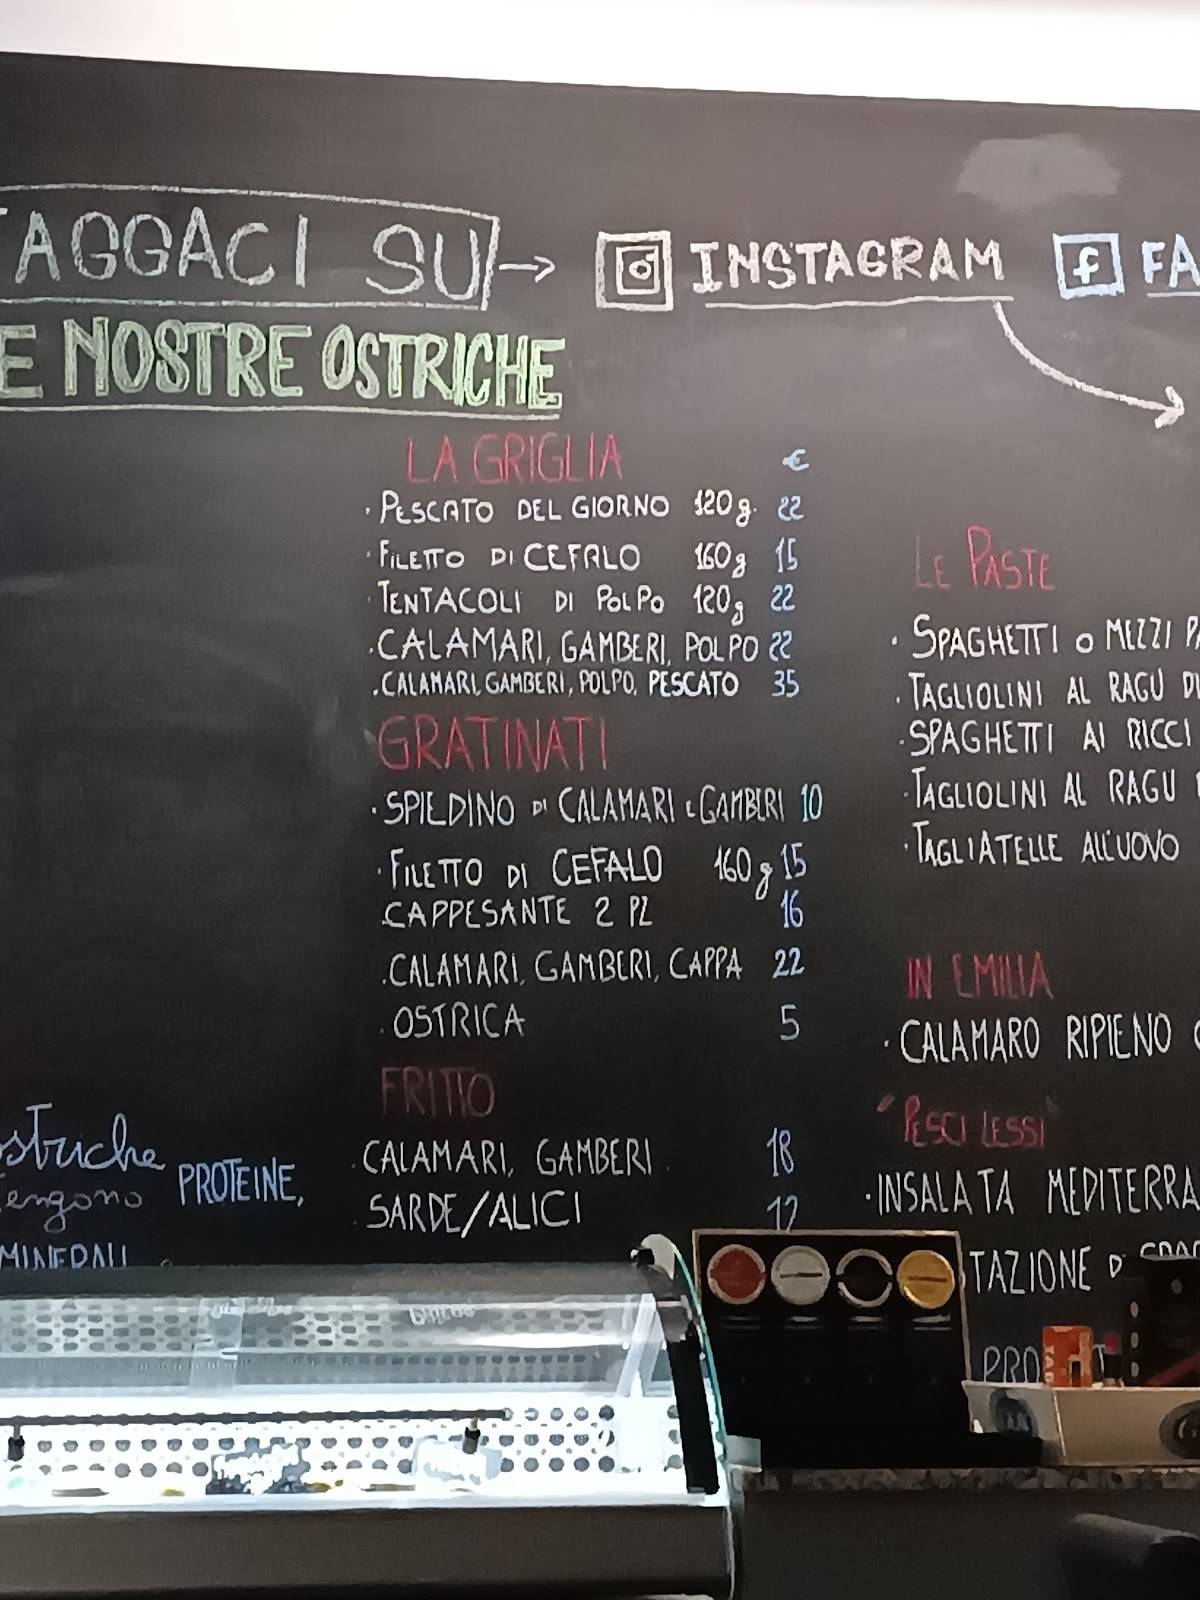 TAGGACI SU → INSTAGRAM f FA
E NOSTRE OSTRICHE
LA GRIGLIA €
· PESCATO DEL GIORNO 120g. 22
· FILETTO DI CEFALO 160g 15
· TENTACOLI DI POLPO 120g 22
· CALAMARI, GAMBERI, POLPO 22
· CALAMARI, GAMBERI, POLPO, PESCATO 35
GRATINATI
· SPIEDINO DI CALAMARI E GAMBERI 10
· FILETTO DI CEFALO 160g 15
· CAPPESANTE 2 PZ 16
· CALAMARI, GAMBERI, CAPPA 22
· OSTRICA 5
FRITTO
· CALAMARI, GAMBERI 18
· SARDE/ALICI 12
ostriche
tengono PROTEINE,
MINERALI
LE PASTE
· SPAGHETTI O MEZZI PA
· TAGLIOLINI AL RAGU DI
· SPAGHETTI AI RICCI
· TAGLIOLINI AL RAGU
· TAGLIATELLE ALL'UOVO
IN EMILIA
· CALAMARO RIPIENO
"PESCI LESSI"
· INSALATA MEDITERRA
TAZIONE DI
PRO